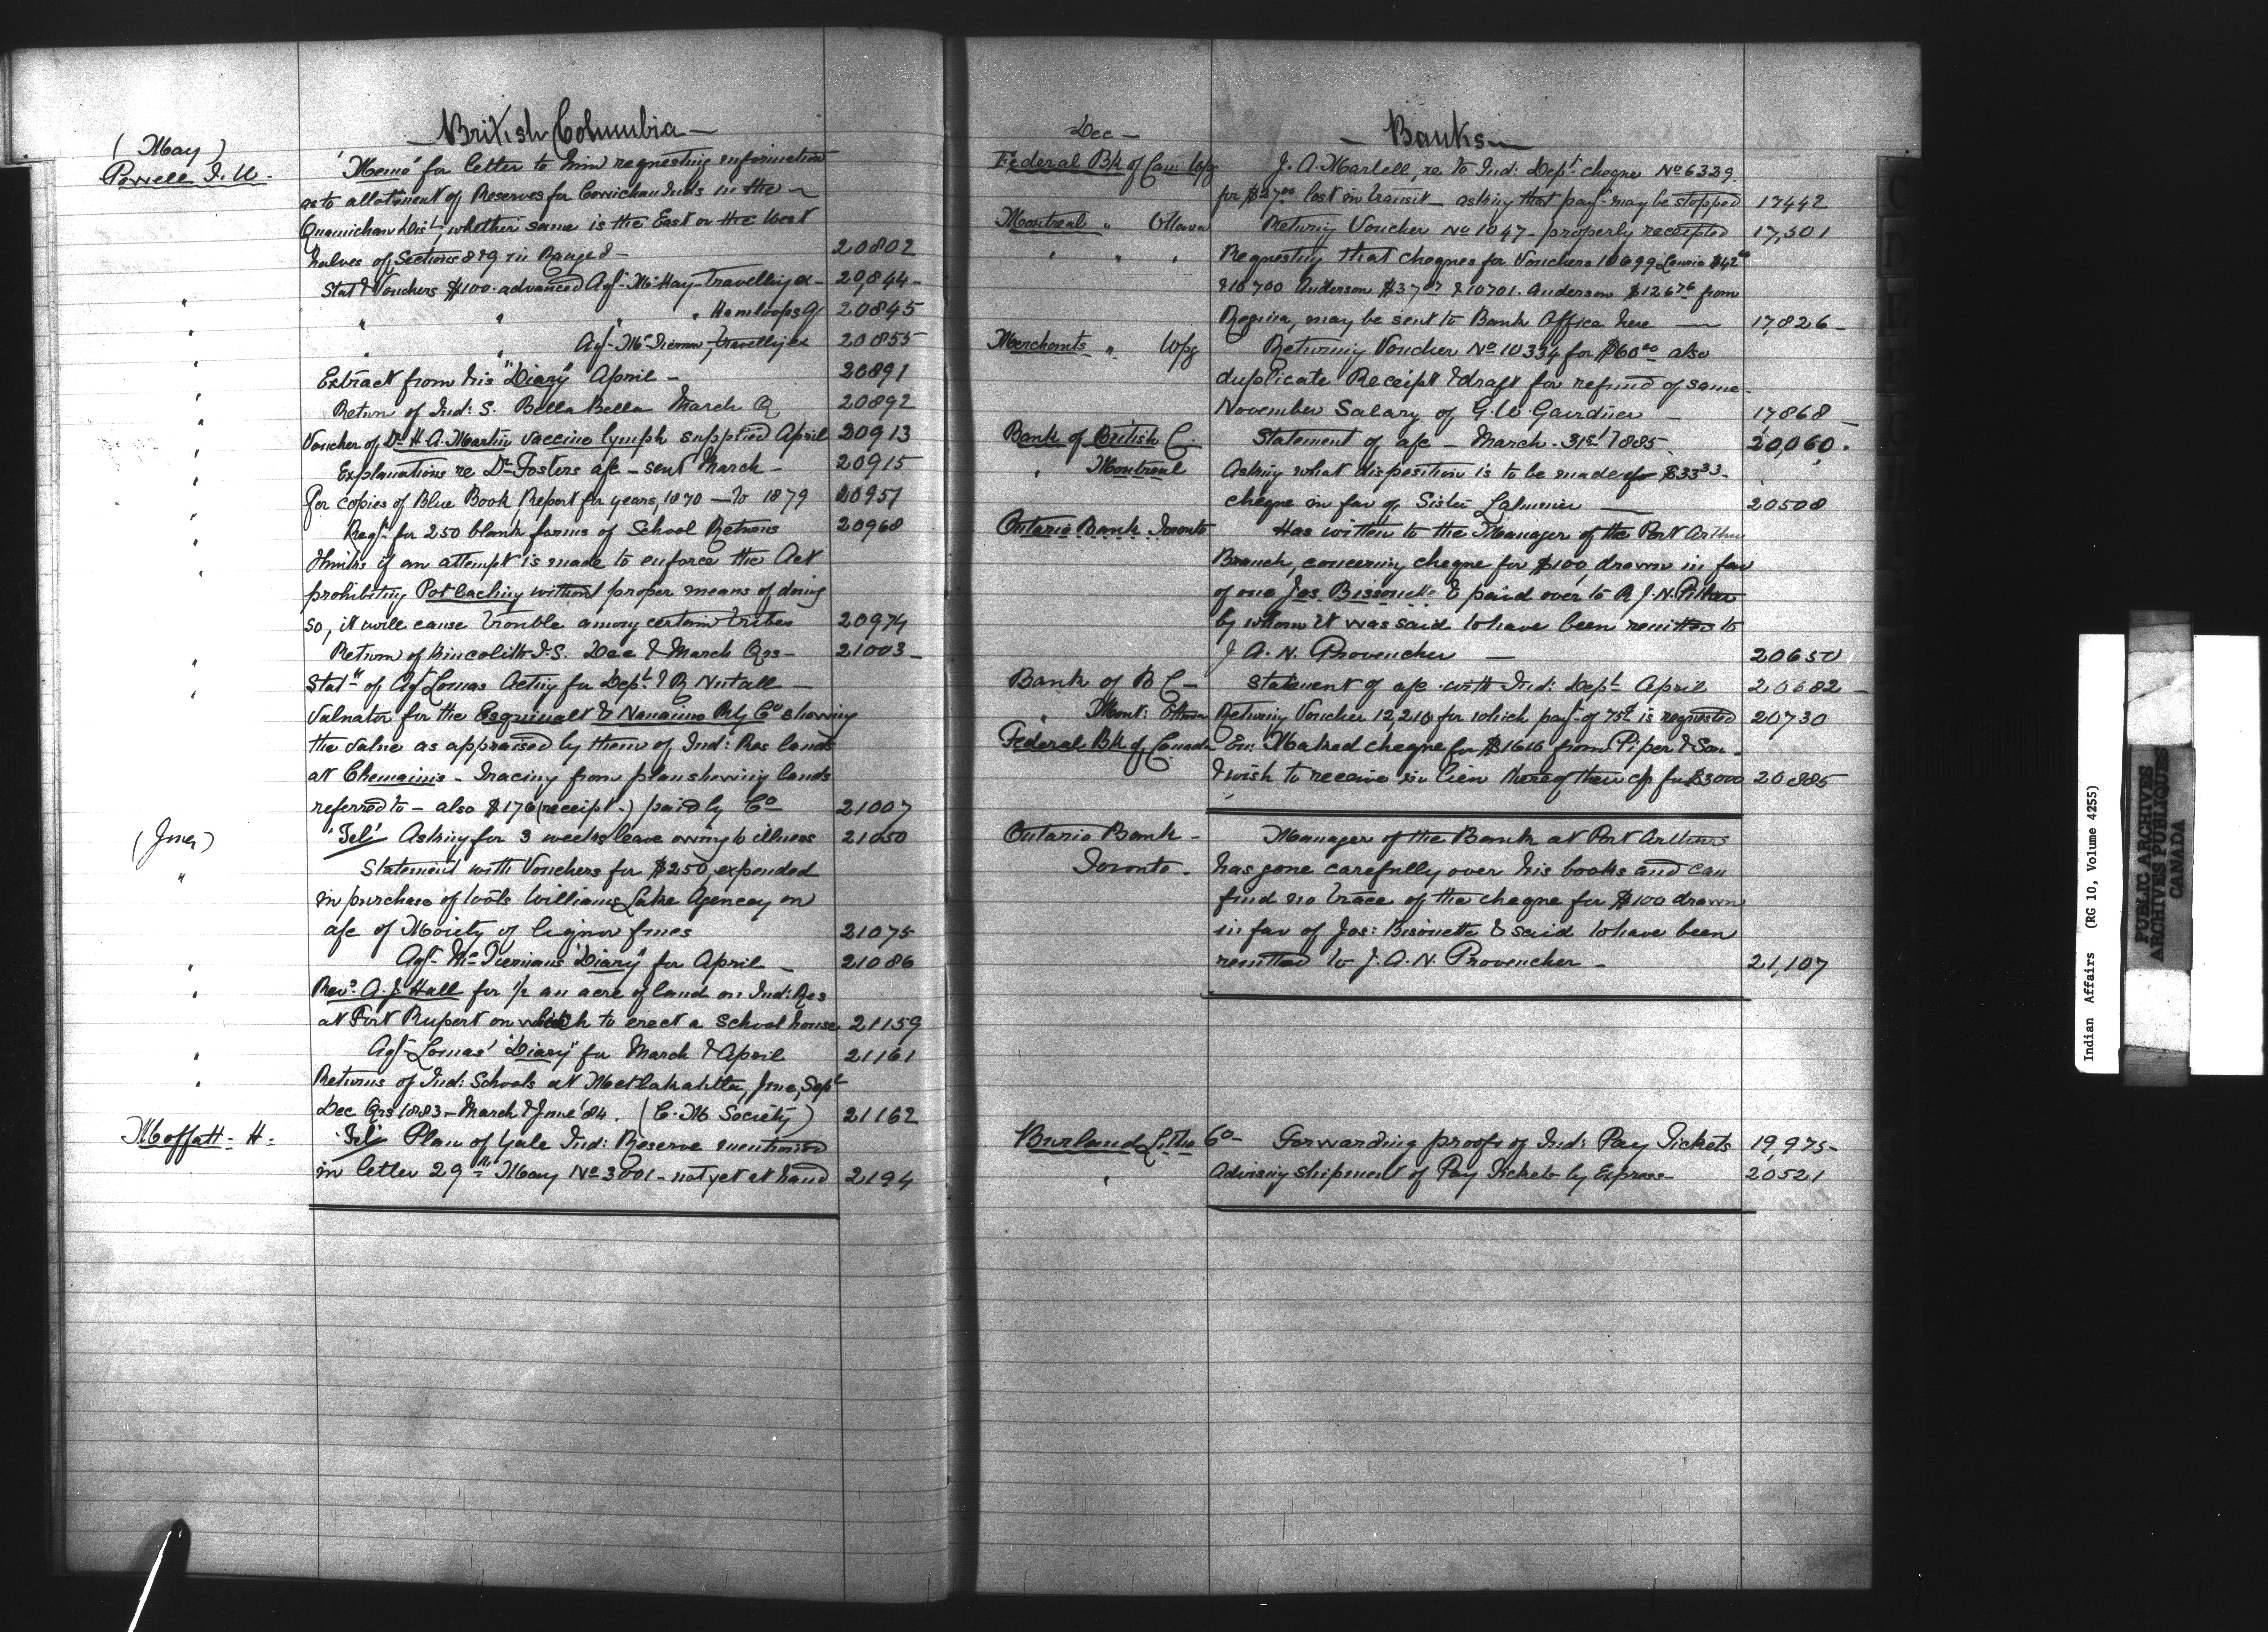 British Columbia
(May)
Powell I. W. "Memo" for letter to him requesting information
as to allotment of Reserves for Cowichan Inds in the
Quamichan Dist, whether same is the East or the West
halves of Sections 8 & 9 in Range 20802
" Stat & Vouchers $100. advanced Agt McKay travelling ex 20,844
" " " " Kamloops 20845
" " Agt McTiernan travelling ex 20855
" Extract from his "Diary" April 20891
" Return of Ind: S. Bella Bella March Q 20892
" Voucher of Dr H A. Martin vaccine lymph supplied April 20913
" Explanations re Dr Fosters a/c sent March 20915
" For copies of Blue Book Report for years, 1870 to 1879 20957
" Reqt for 250 blank forms of School Returns 20968
" Thinks if an attempt is made to enforce the Act
prohibiting Potlaching without proper means of doing
so, it will cause trouble among certain tribes 20974
" Return of Kincolith I.S. Dec & March Qrs 21003
" Statt of Agt Lomas Acting for Dept & R Nutall
Valuator for the Esquimalt & Nanaimo Rly Co showing
the value as appraised by them of Ind: Res lands
at Chemainis - Tracing from plan showing lands
referred to - also $176 (receipt) paid by Co 21007
(June) 'Tel' Asking for 3 weeks leave owing to illness 21050
" Statement with Vouchers for $250, expended
in purchase of tools Williams Lake Agency on
a/c of Moiety of liquor fines 21075
" Agt McTiernans "Diary" for April 21086
" Revd A. J. Hall for 1/2 an acre of land on Ind: Res
at Fort Rupert on which to erect a School house 21159
" Agt Lomas' "Diary" for March & April 21161
" Returns of Ind: Schools at Metlakahtla, June, Sept
Dec Qrs 1883 - March & June '84. (C. M Society) 21162
Moffatt - H. 'Tel' Plan of Yale Ind: Reserve mentioned
in letter 29th May No 3001 - not yet at hand 2194
Dec - Banks
Federal Bk of Can Wpg J. A. Martell, re to Ind: Dept cheque No 6339
for lost in transit - asking that payt may be stopped 17442
Montreal " Ottawa Returng Voucher No 1047 - properly receipted 17,501
" " " Requesting that cheques for Vouchers 10699 $42
& 10700 Anderson $37 & 10701. Anderson $126 76 from
Regina, may be sent to Bank Office here 17826
Merchants " Wpg Returning Voucher No 10334 for $60 00 also
duplicate Receipt & draft for refund of same
November Salary of G. W. Gairdner 17868
Bank of British C. Statement of a/c - March 31st 1885 20,060
" Montreal Asking what disposition is to be made of $33 33
cheque in fav of Sister 20508
Ontario Bank Toronto Has written to the Manager of the Port Arthur
Branch, concerning cheque for $100, drawn in fav
of one Jos Bissonette & paid over to R J. N. Pither
by whom it was said to have been remitted to
J A. N. Provencher 20650
Bank of B C Statement of a/c with Ind: Dept April 20682
" Mont: Ottawa Returng Voucher 12,210 for which payt of 75¢ is requested 20730
Federal Bk of Canada Enc Marked cheque for $1616 from Piper & Son
& wish to receive in lieu thereof their cp for $3000 20885
Ontario Bank Manager of the Bank at Port Arthurs
Toronto. has gone carefully over his books and can
find no trace of the cheque for $100 drawn
in fav of Jos: Bisonette & said to have been
remitted to J. A. N. Provencher 21,107
Burland Litho Co Forwarding proofs of Ind: Pay Tickets 19,975
" Advising shipment of Pay Tickets by Express 20521
Indian Affairs (RG 10, Volume 4255)
PUBLIC ARCHIVES
ARCHIVES PUBLIQUES
CANADA